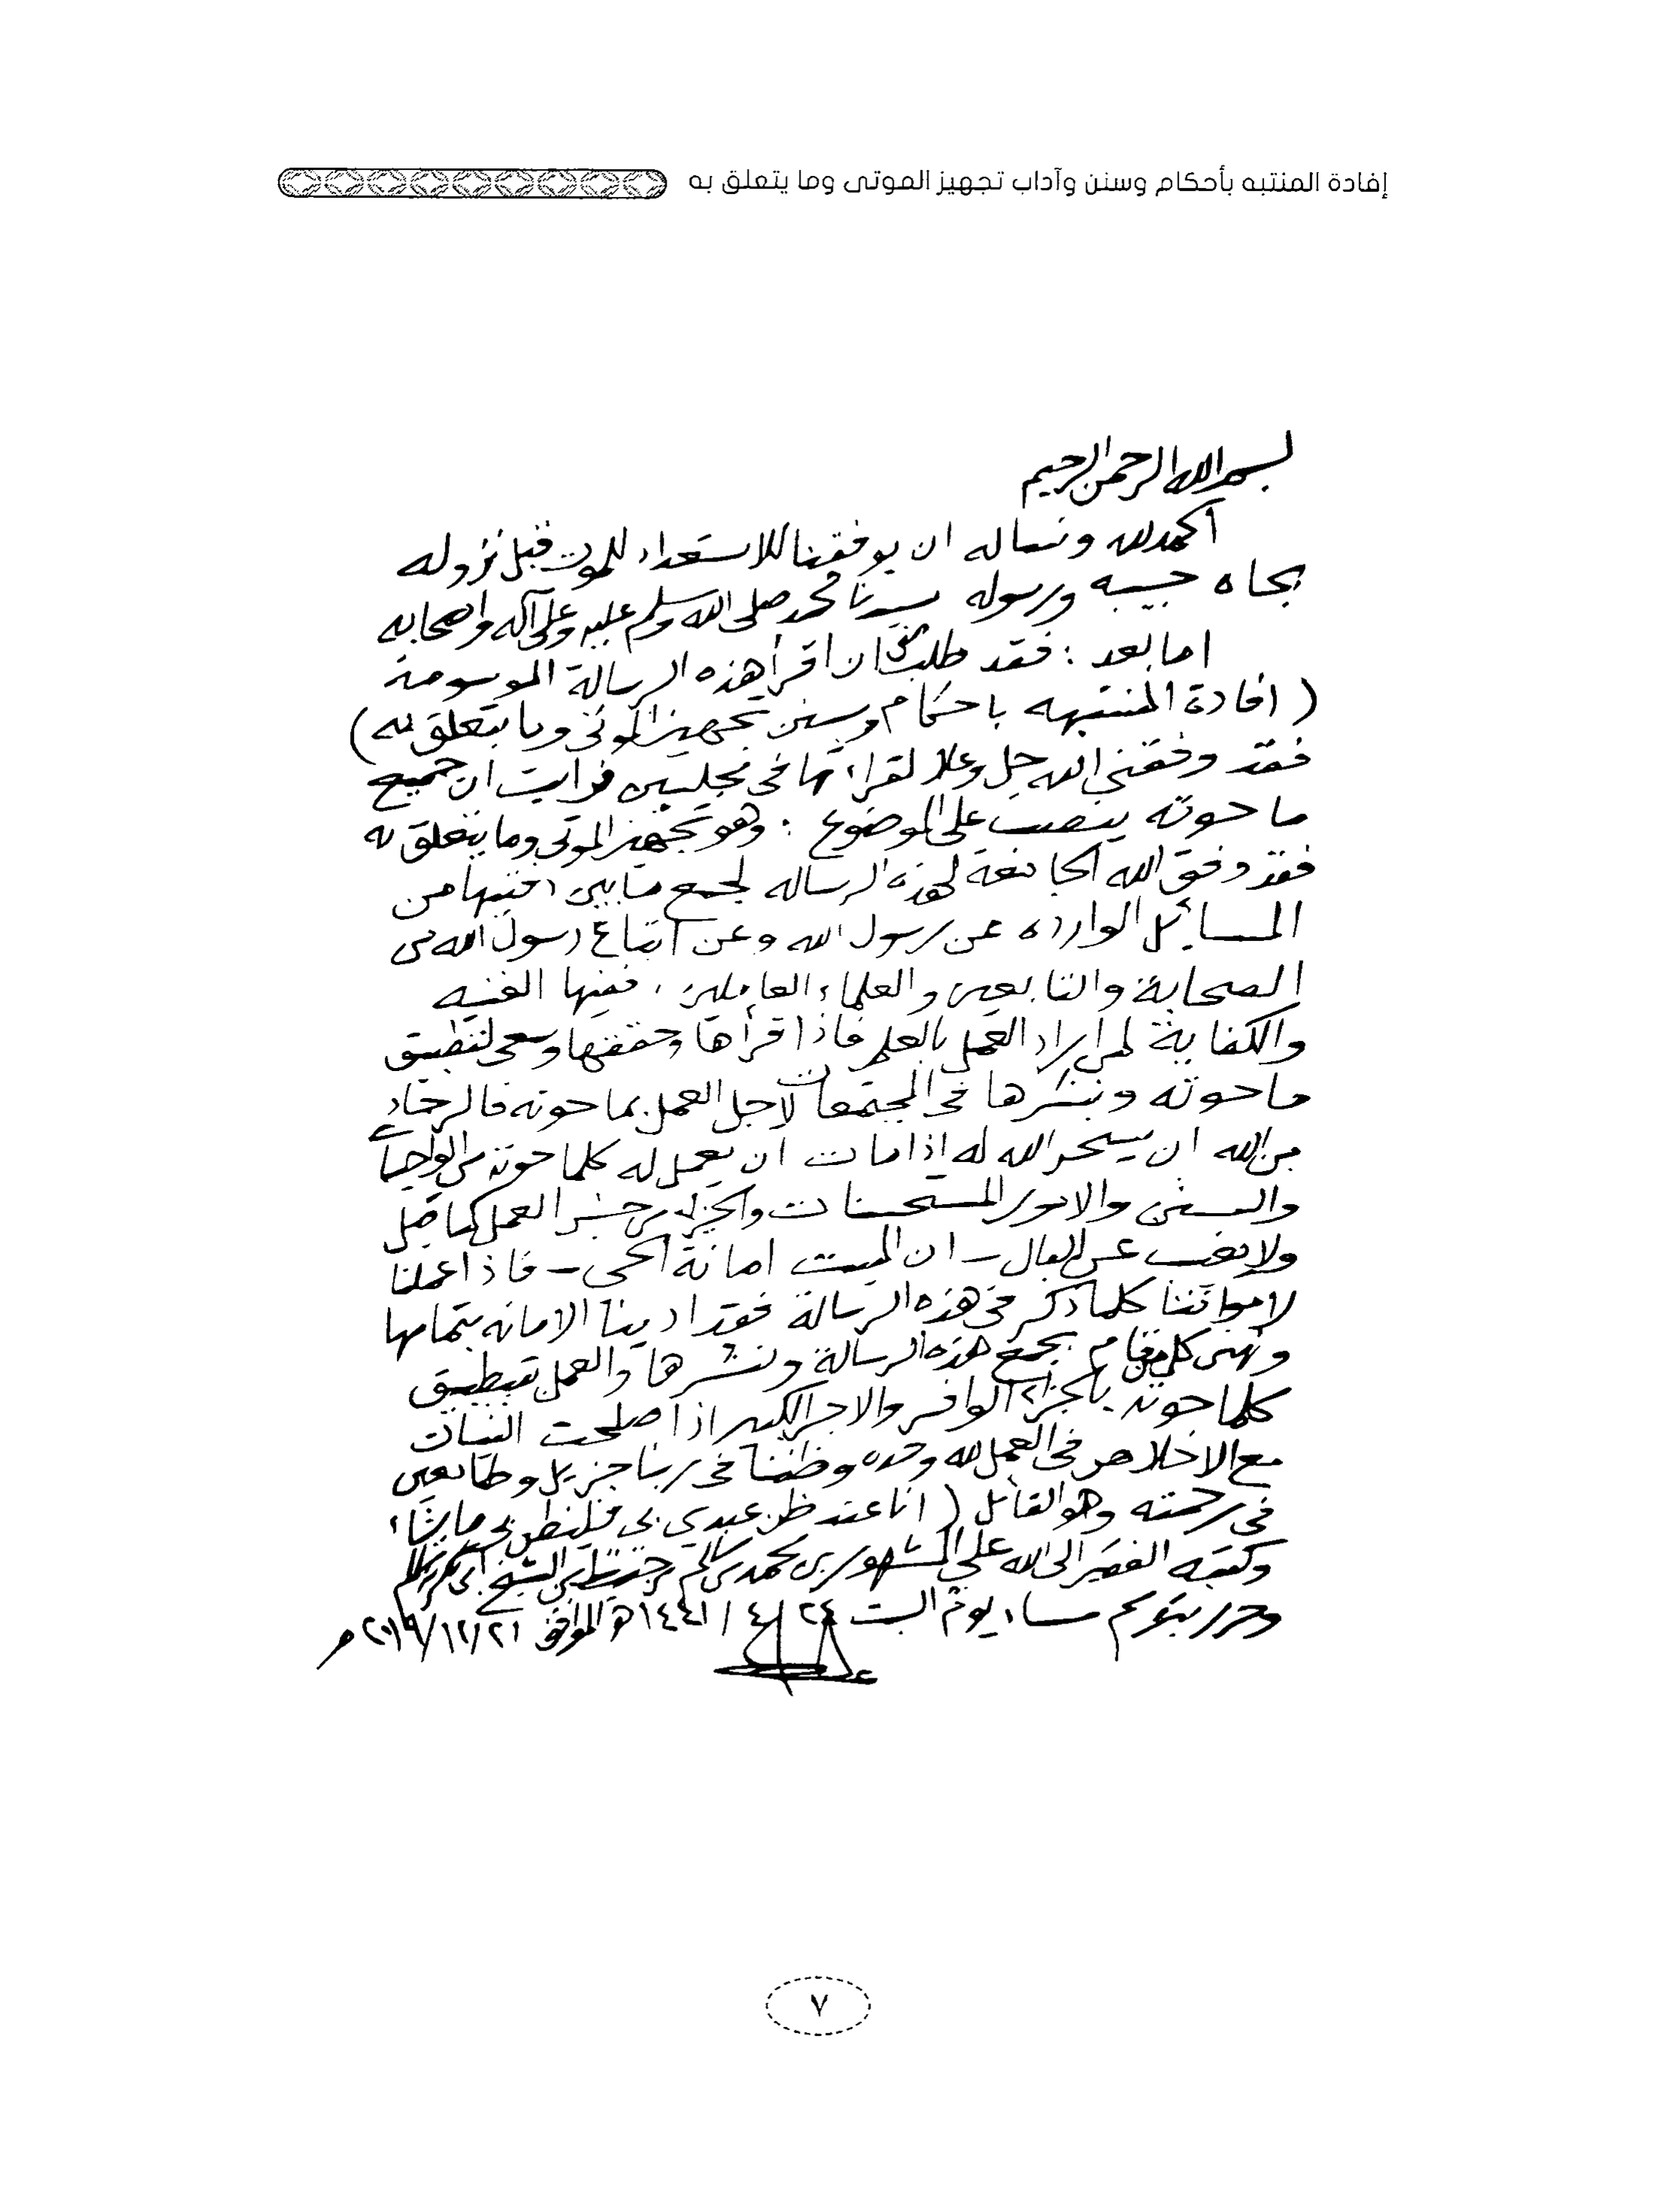 إفادة المنتبه بأحكام وسنن وآداب تجهيز الموتى وما يتعلق به
بسم الله الرحمن الرحيم
الحمد لله ونساله ان يوفقنا للاستعداد للموت قبل نزوله
بجاه حبيبه ورسوله سيدنا محمد صلى الله وسلم عليه وعلى آله واصحابه
اما بعد : فقد طلب مني ان اقرأ هذه الرسالة الموسومة
( افادة المنتبه باحكام وسنن تجهيز الموتى وما يتعلق به )
فقد وفقني الله جل وعلا لقراءتها في مجلسين فرايت ان جميع
ما حوته ينصب على الموضوع : وهو تجهيز الموتى وما يتعلق به
فقد وفق الله الجامعة لهذه الرساله لجمع ما بين دفتيها من
المسائل الوارده عن رسول الله وعن اتباع رسول الله من
الصحابة والتابعين والعلماء العاملين ، ففيها الغنيه
والكفاية لمن اراد العمل بالعلم فاذا قرأها وحققها وسعى لتطبيق
ما حوته ونشرها في المجتمعات لاجل العمل بما حوته فالرجاء
من الله ان يسخر الله له إذا مات ان يعمل له كلما حوته من الواجبات
والسنن والامور المستحسنات والجزاء من جنس العمل كما قيل
ولا يغب عن البال – ان الميت امانة الحي – فاذا عملنا
لامواتنا كلما ذكر في هذه الرسالة فقد ادينا الامانه بتمامها
كل من قام بجمع هذه الرسالة ونشرها والعمل بتطبيق
كلما حوته بالجزاء الوافر والاجر الكبير اذا صلحت النيات
مع الاخلاص في العمل لله وحده وظننا في ربنا جزيل وطامعين
في رحمته وهو القائل ( انا عند ظن عبدي بي فليظن بي ما يشاء
وكتبه الفقير الى الله علي المشهور بن محمد بن سالم بن حفيظ بن الشيخ ابي بكر بن سالم
وحرر بتريم مساء يوم السبت ٢٤ / ٤ / ١٤٤١ هـ الموافق ٢١ / ١٢ / ٢٠١٩ م
٧